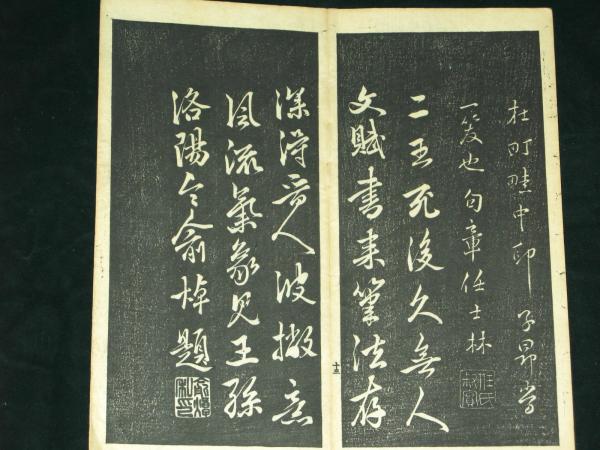 杜町畦中印 子昂當
一發也句章任士林
任氏叔寔
二王死後久無人
文賦書來筆法存
十三
深得晉人波撇意
風流氣象見王孫
洛陽令俞焯題